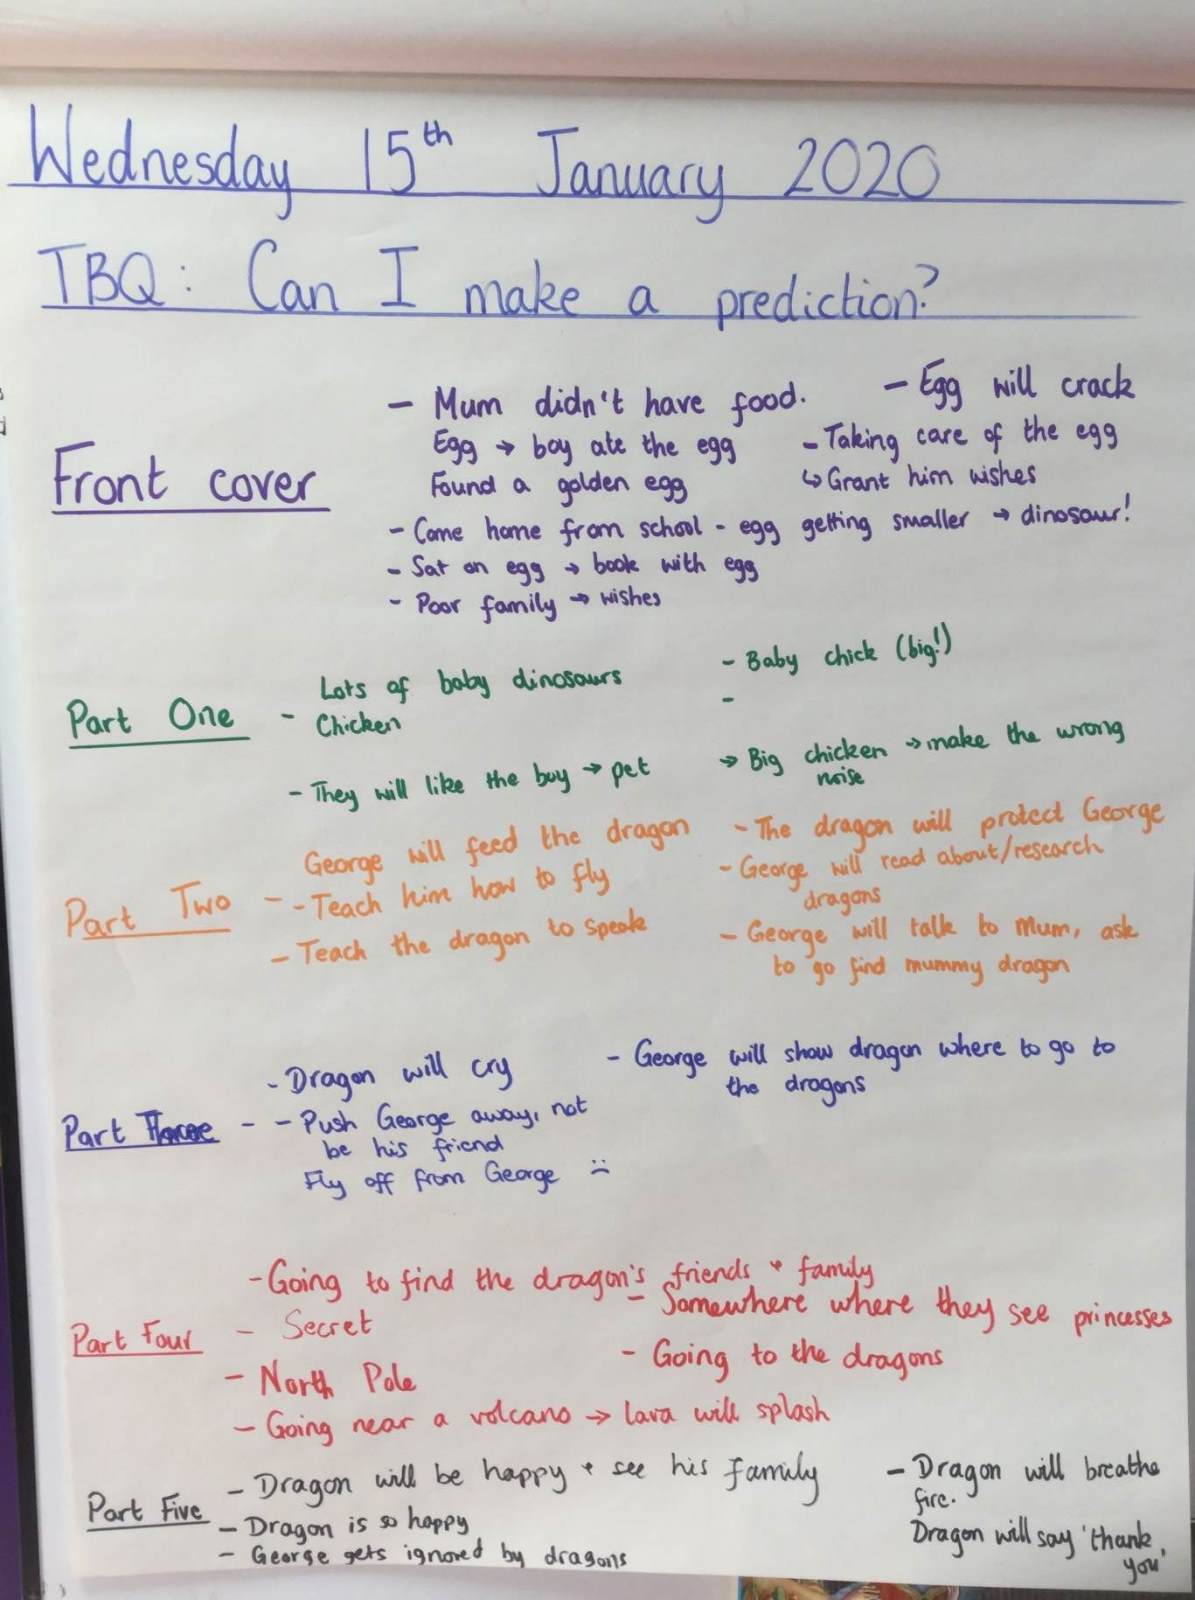 Wednesday 15th January 2020
TBQ: Can I make a prediction?
Front cover
- Mum didn't have food.
Egg → boy ate the egg
Found a golden egg
- Egg will crack
- Taking care of the egg
↳ Grant him wishes
- Come home from school - egg getting smaller → dinosaur!
- Sat on egg → book with egg
- Poor family → wishes
Part One -
Lots of baby dinosaurs
Chicken
- They will like the boy → pet
- Baby chick (big!)
-
→ Big chicken → make the wrong
noise
Part Two -
George will feed the dragon
- Teach him how to fly
- Teach the dragon to speak
- The dragon will protect George
- George will read about/research
dragons
- George will talk to Mum, ask
to go find mummy dragon
Part Three -
- Dragon will cry
- Push George away, not
be his friend
Fly off from George :(
- George will show dragon where to go to
the dragons
Part Four
- Going to find the dragon's friends + family
- Secret
- North Pole
- Somewhere where they see princesses
- Going to the dragons
- Going near a volcano → lava will splash
Part Five
- Dragon will be happy + see his family
- Dragon is so happy
- George gets ignored by dragons
- Dragon will breathe
fire.
Dragon will say 'thank
you'